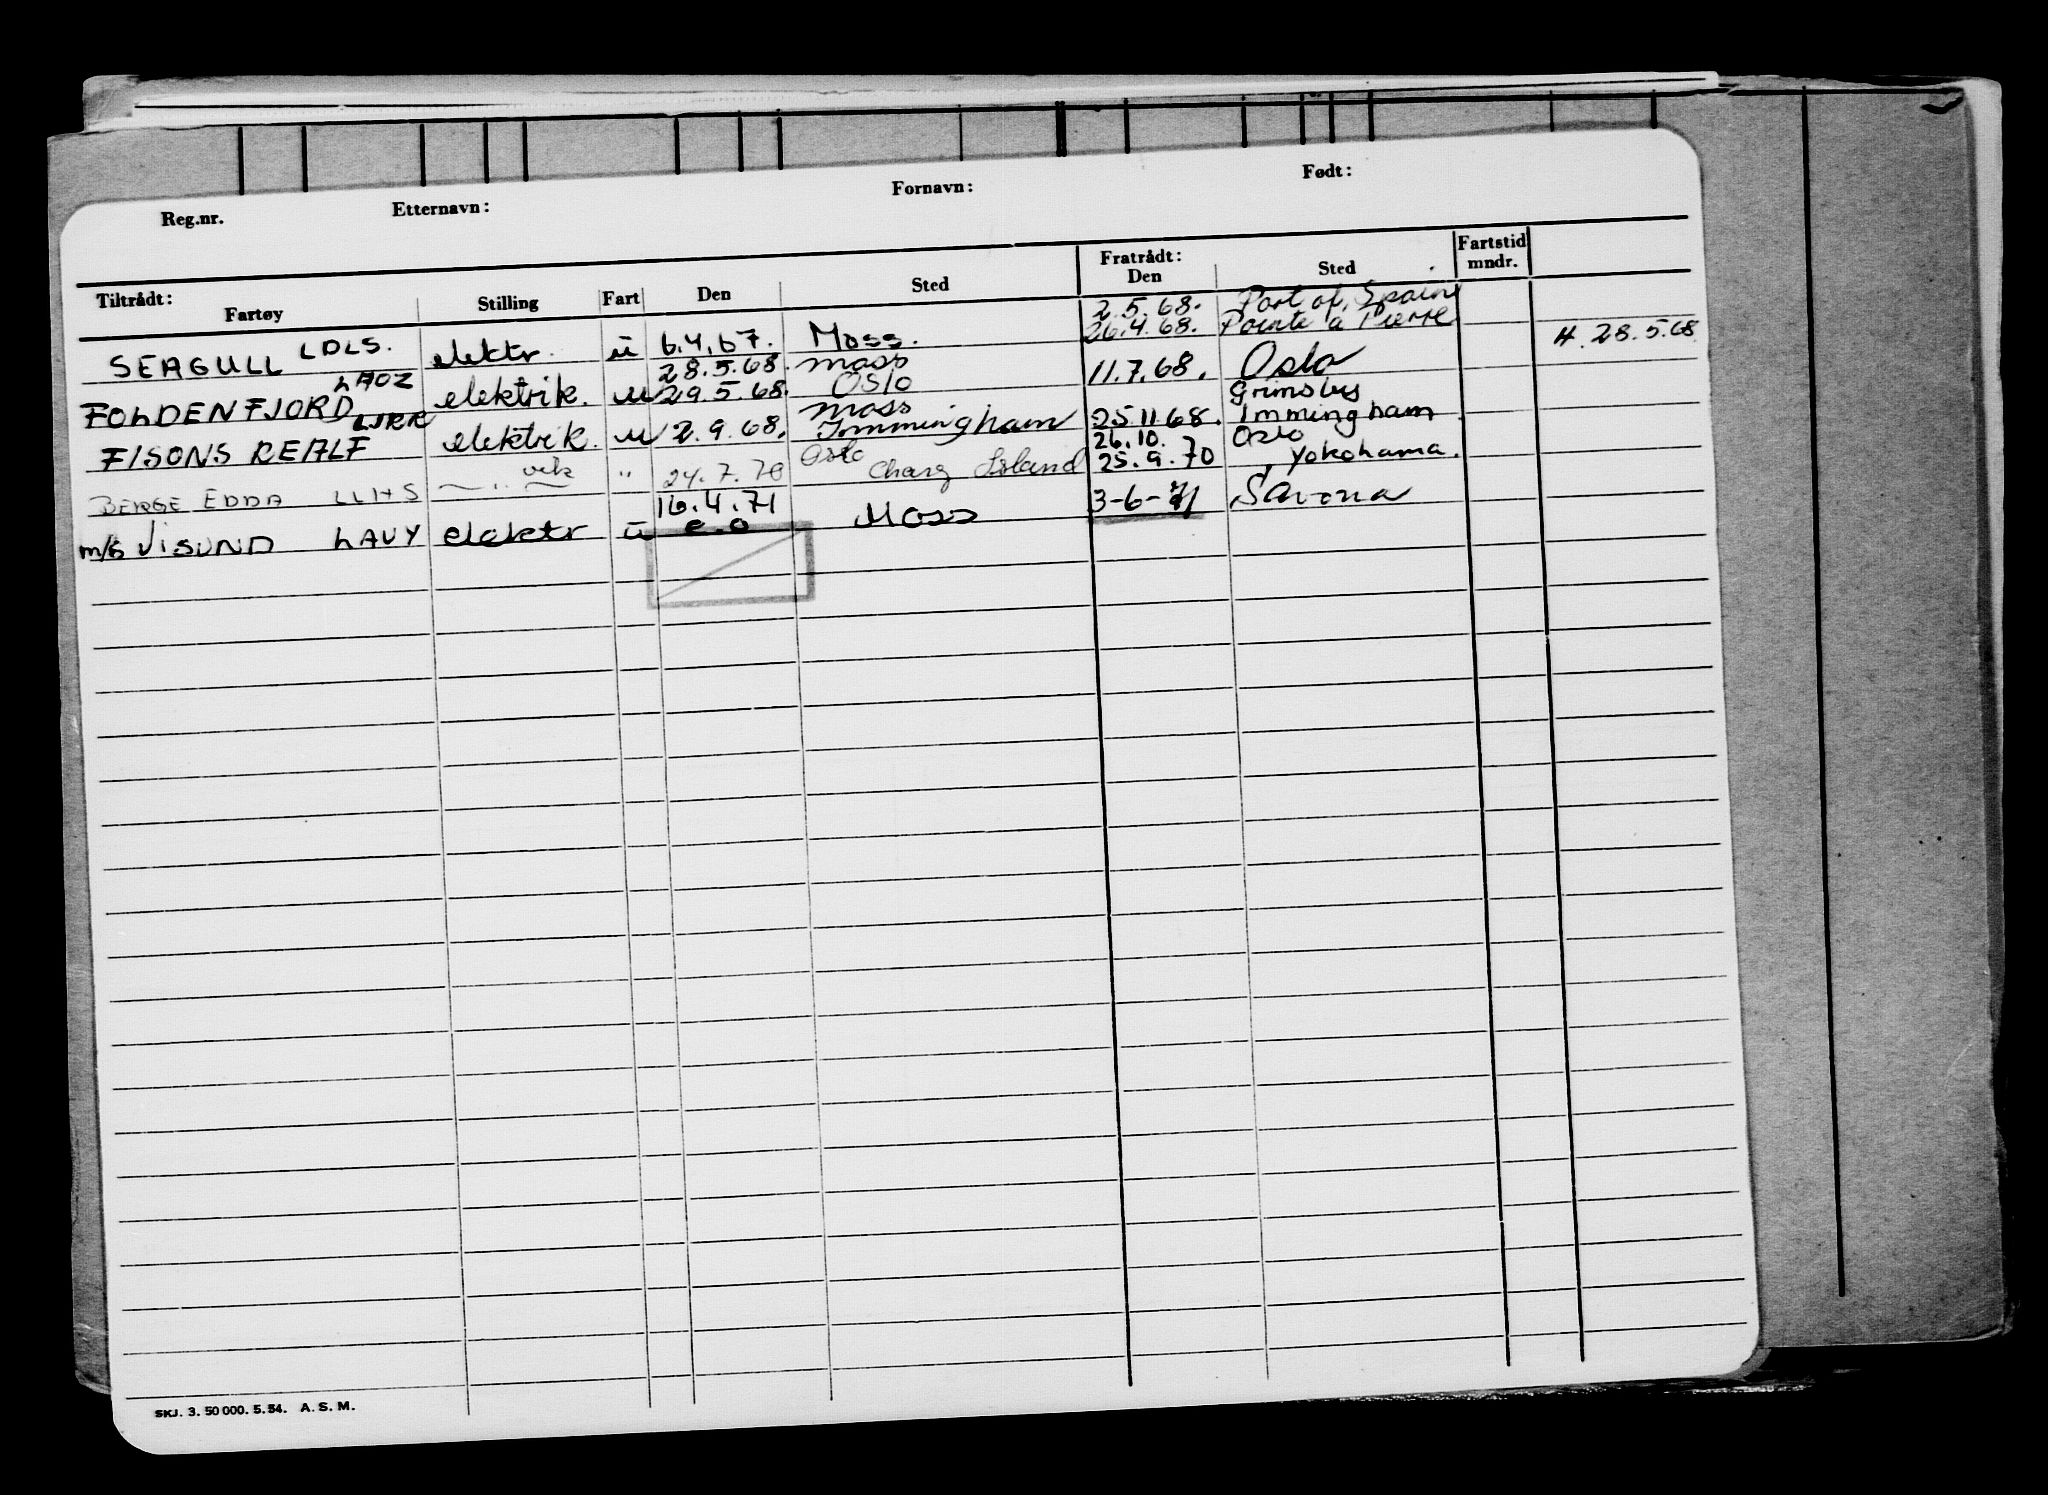 Reg.nr. Etternavn: Fornavn: Født:
Tiltrådt: Fratrådt:
Fartøy Stilling Fart Den Sted Den Sted Fartstid mndr.
2.5.68. Port of Spain
SEAGULL LDLS. elektr. ü 6.4.67. Moss. 26.4.68. Pointe a Pierre H. 28.5.68
28.5.68. Moss
FOLDENFJORD LAOZ elektrik. u 29.5.68. OSLO 11.7.68. Oslo
Moss Grimsby
FISONS REALF LJRR elektrik. u 2.9.68. Immingham 25.11.68. Immingham
Oslo 26.10. Oslo
BERGE EDDA LLHS — " — vik " 24.7.70 Charg Island 25.9.70 Yokohama.
16.4.71
m/s VISUND LAVY elektr ü e.o Moss 3-6-71 Savona
SKJ. 3. 50 000. 5. 54. A. S. M.